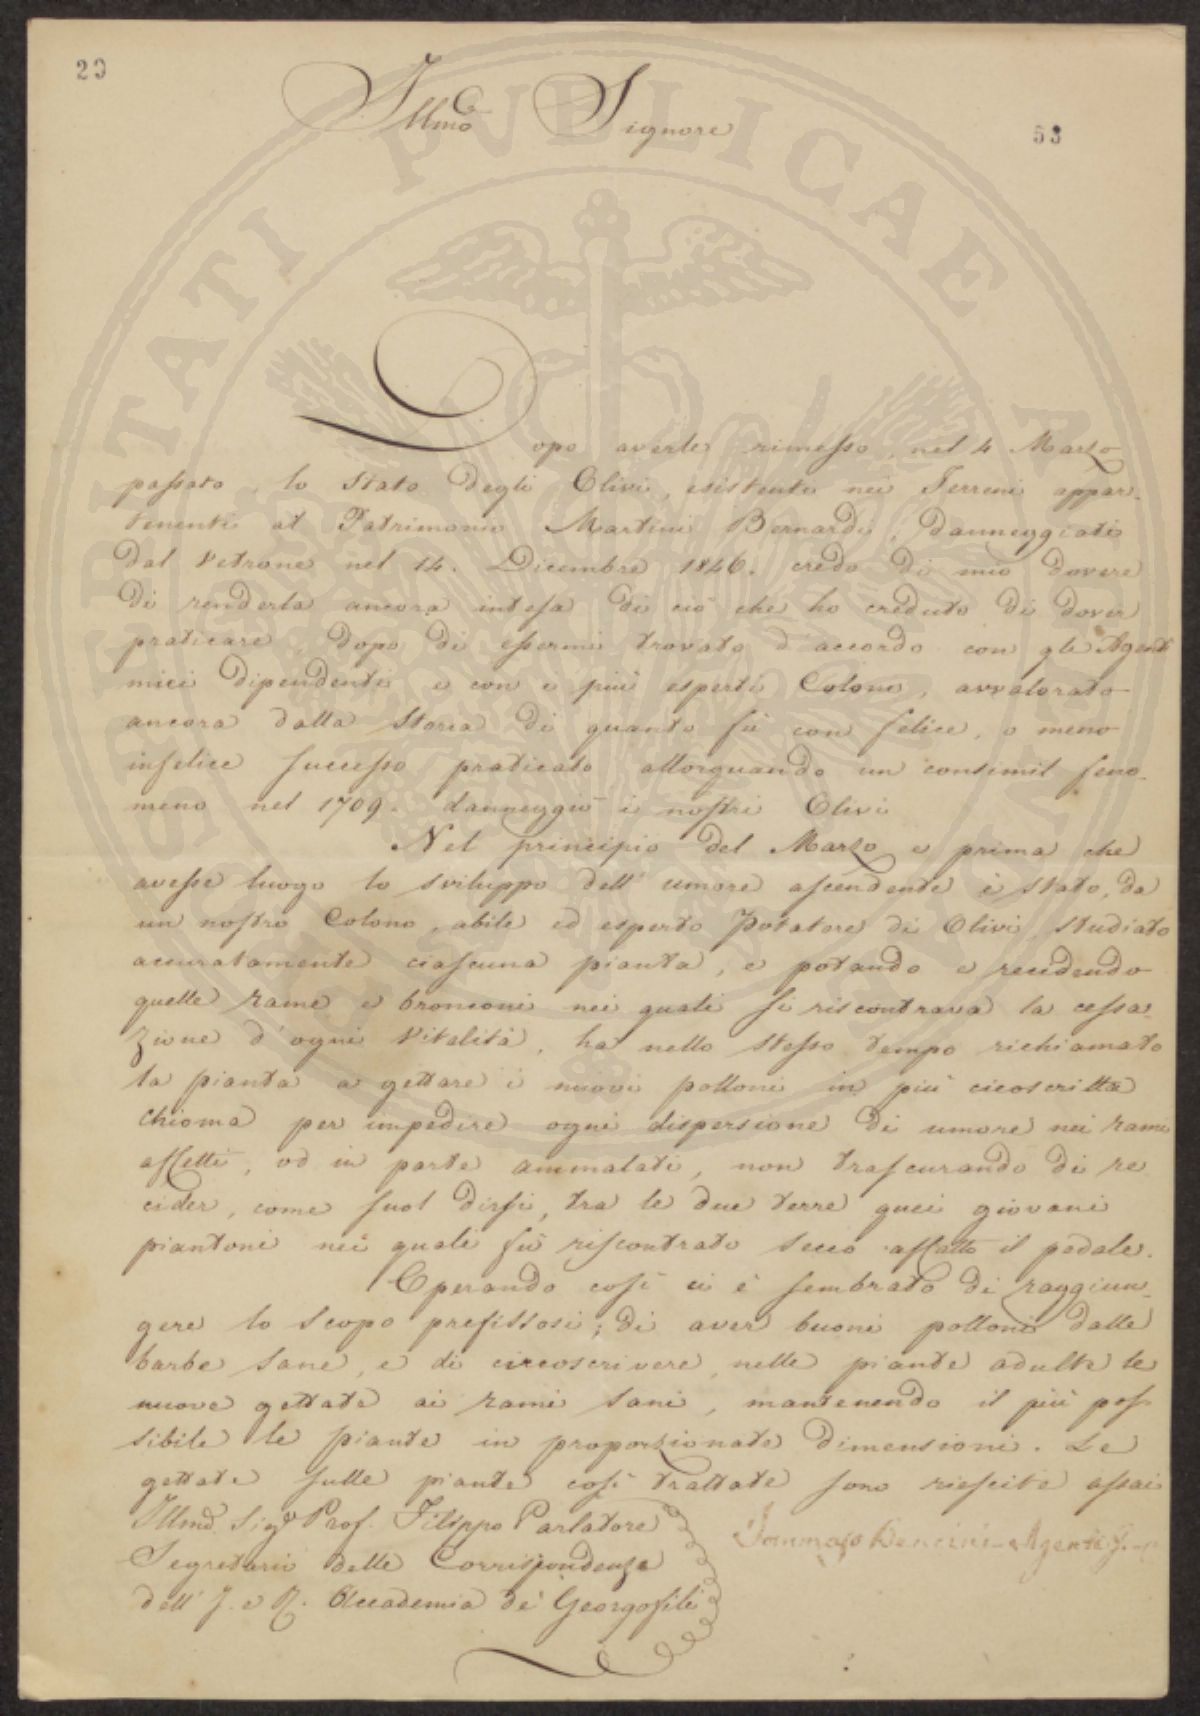 29
Illmo Signore
53
Dopo averle rimesso, nel 4 Marzo
passato, lo Stato degli Olivi, esistenti nei Terreni appar-
tenenti al Patrimonio Martini Bernardi, danneggiati
dal Vetrone nel 14. Dicembre 1846. credo di mio dovere
di renderla ancora intesa di ciò che ho creduto di dover
praticare, dopo di essermi trovato d'accordo con gli Agenti
miei dipendenti e con i più esperti Coloni, avvalorato
ancora dalla Storia di quanto fù con felice, o meno
infelice successo praticato allorquando un consimil feno-
meno nel 1709. danneggiò i nostri Olivi
Nel principio del Marzo e prima che
avesse luogo lo sviluppo dell'umore ascendente è stato, da
un nostro Colono, abile ed esperto Potatore di Olivi, studiato
accuratamente ciascuna pianta, e potando e recidendo
quelle rame e bronconi nei quali si riscontrava la cessa-
zione d'ogni Vitalità, ha nello stesso tempo richiamato
la pianta a gettare i nuovi polloni in più cicoscritta
chioma per impedire ogni dispersione di umore nei rami
affetti, od in parte ammalati, non trascurando di re
cider, come suol dirsi, tra le due terre quei giovani
piantoni nei quali fù riscontrato secco affatto il pedale.
Operando così ci è sembrato di raggiun-
gere lo scopo prefissosi; di aver buoni polloni dalle
barbe sane, e di circoscrivere, nelle piante adulte le
nuove gettate ai rami sani, mantenendo il più pos
sibile le piante in proporzionate dimensioni. Le
gettate sulle piante così trattate sono riescite assai
Illmo Sigr Prof. Filippo Parlatore
Segretario delle Corrispondenze
dell'J. e R. Accademia de' Georgofili
Tommaso Bencini Agente
PVBLICAE